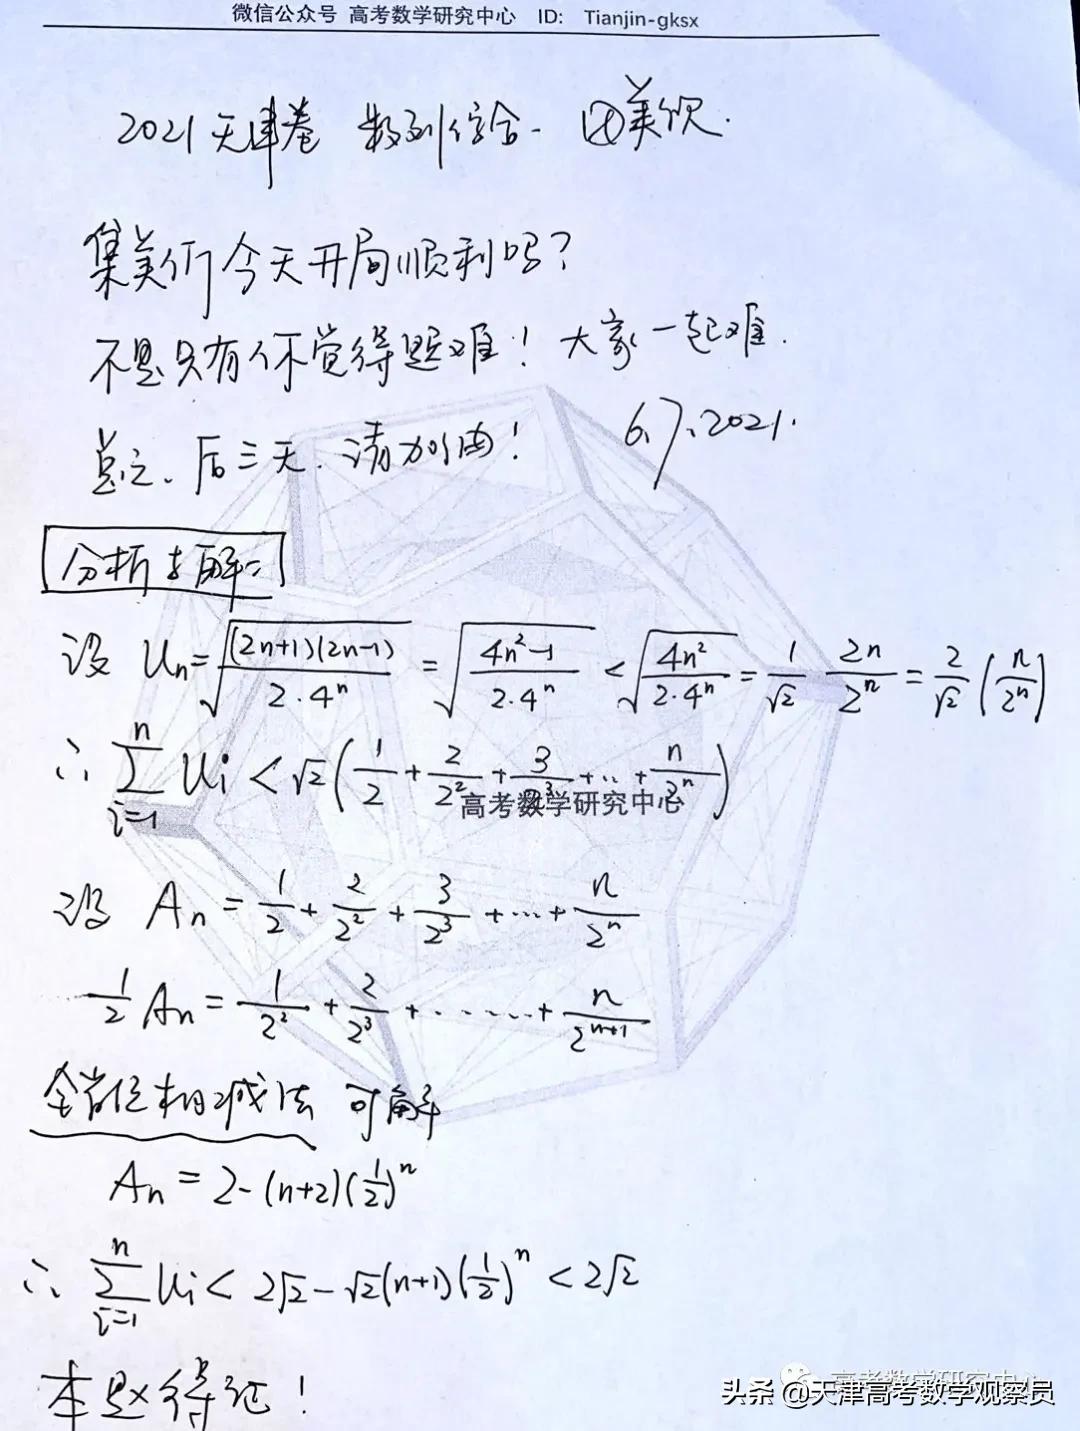 微信公众号 高考数学研究中心 ID: Tianjin-gksx
2021天津卷 数列综合-
集美们今天开局顺利吗?
不是只有你觉得题难!大家一起难.
总之、后三天.请加油!
6.7.2021.
分析与解:
设 Un=√((2n+1)(2n-1)/(2·4ⁿ)) = √((4n²-1)/(2·4ⁿ)) < √(4n²/(2·4ⁿ)) = 1/√2 · 2n/2ⁿ = 2/√2 (n/2ⁿ)
∴ Σ_{i=1}^{n} Ui < √2(1/2 + 2/2² + 3/2³ + ‥ + n/2ⁿ)
高考数学研究中心
设 An = 1/2 + 2/2² + 3/2³ + … + n/2ⁿ
1/2 An = 1/2² + 2/2³ + ‥‥‥ + n/2ⁿ⁺¹
错位相减法 可解
An = 2-(n+2)(1/2)ⁿ
∴ Σ_{i=1}^{n} Ui < 2√2 - √2(n+1)(1/2)ⁿ < 2√2
本题得证!
高考数学研究中心
头条 @天津高考数学观察员